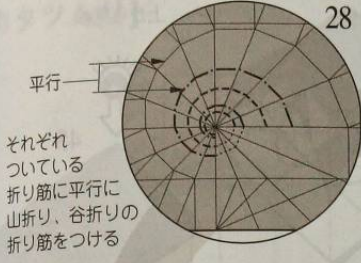 28
平行
それぞれ
ついている
折り筋に平行に
山折り、谷折りの
折り筋をつける